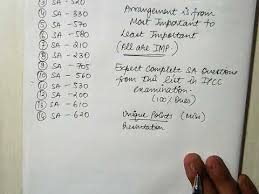 ③ SA - 520
④ SA - 330
⑤ SA - 570
⑥ SA - 580
⑦ SA - 210
⑧ SA - 230
⑨ SA - 705
⑩ SA - 560
⑪ SA - 530
⑫ SA - 200
⑬ SA - 610
⑭ SA - 620
Arrangement is from
Most Important to
Least Important
(All are IMP)
Expect Complete SA Questions
from this list in IPCC
examination.
Unique Points
Presentation